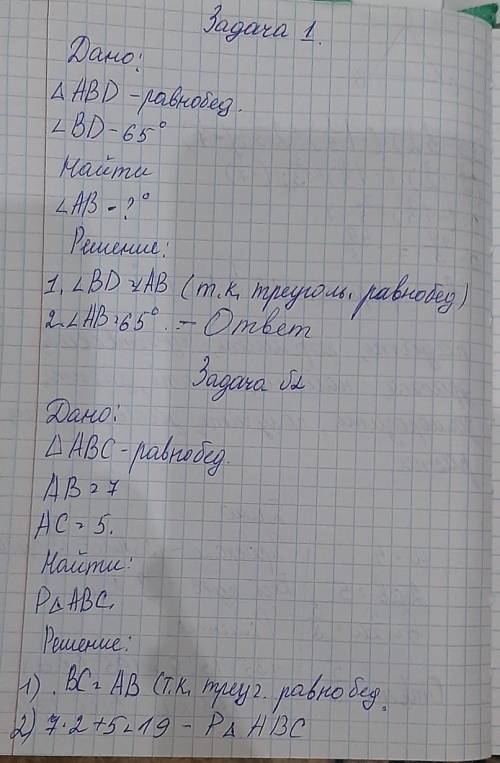 Задача 1.
Дано:
△ABD - равнобед.
∠BD - 65°
Найти
∠AB - ?°
Решение:
1. ∠BD = ∠AB (т.к. треуголь. равнобед)
2. ∠AB = 65°. - Ответ
Задача 2
Дано:
△ABC - равнобед.
AB = 7
AC = 5.
Найти:
P△ABC.
Решение:
1) BC = AB (т.к. треуг. равнобед.
2) 7·2+5=19 - P△ABC